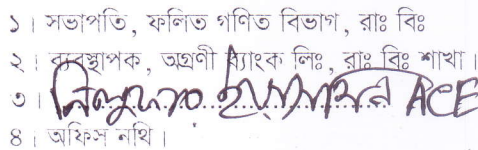 ১। সভাপতি, ফলিত গণিত বিভাগ, রাঃ বিঃ
২। ব্যবস্থাপক, অগ্রণী ব্যাংক লিঃ, রাঃ বিঃ শাখা।
৩। ইয়াসমিন ACE
৪। অফিস নথি।